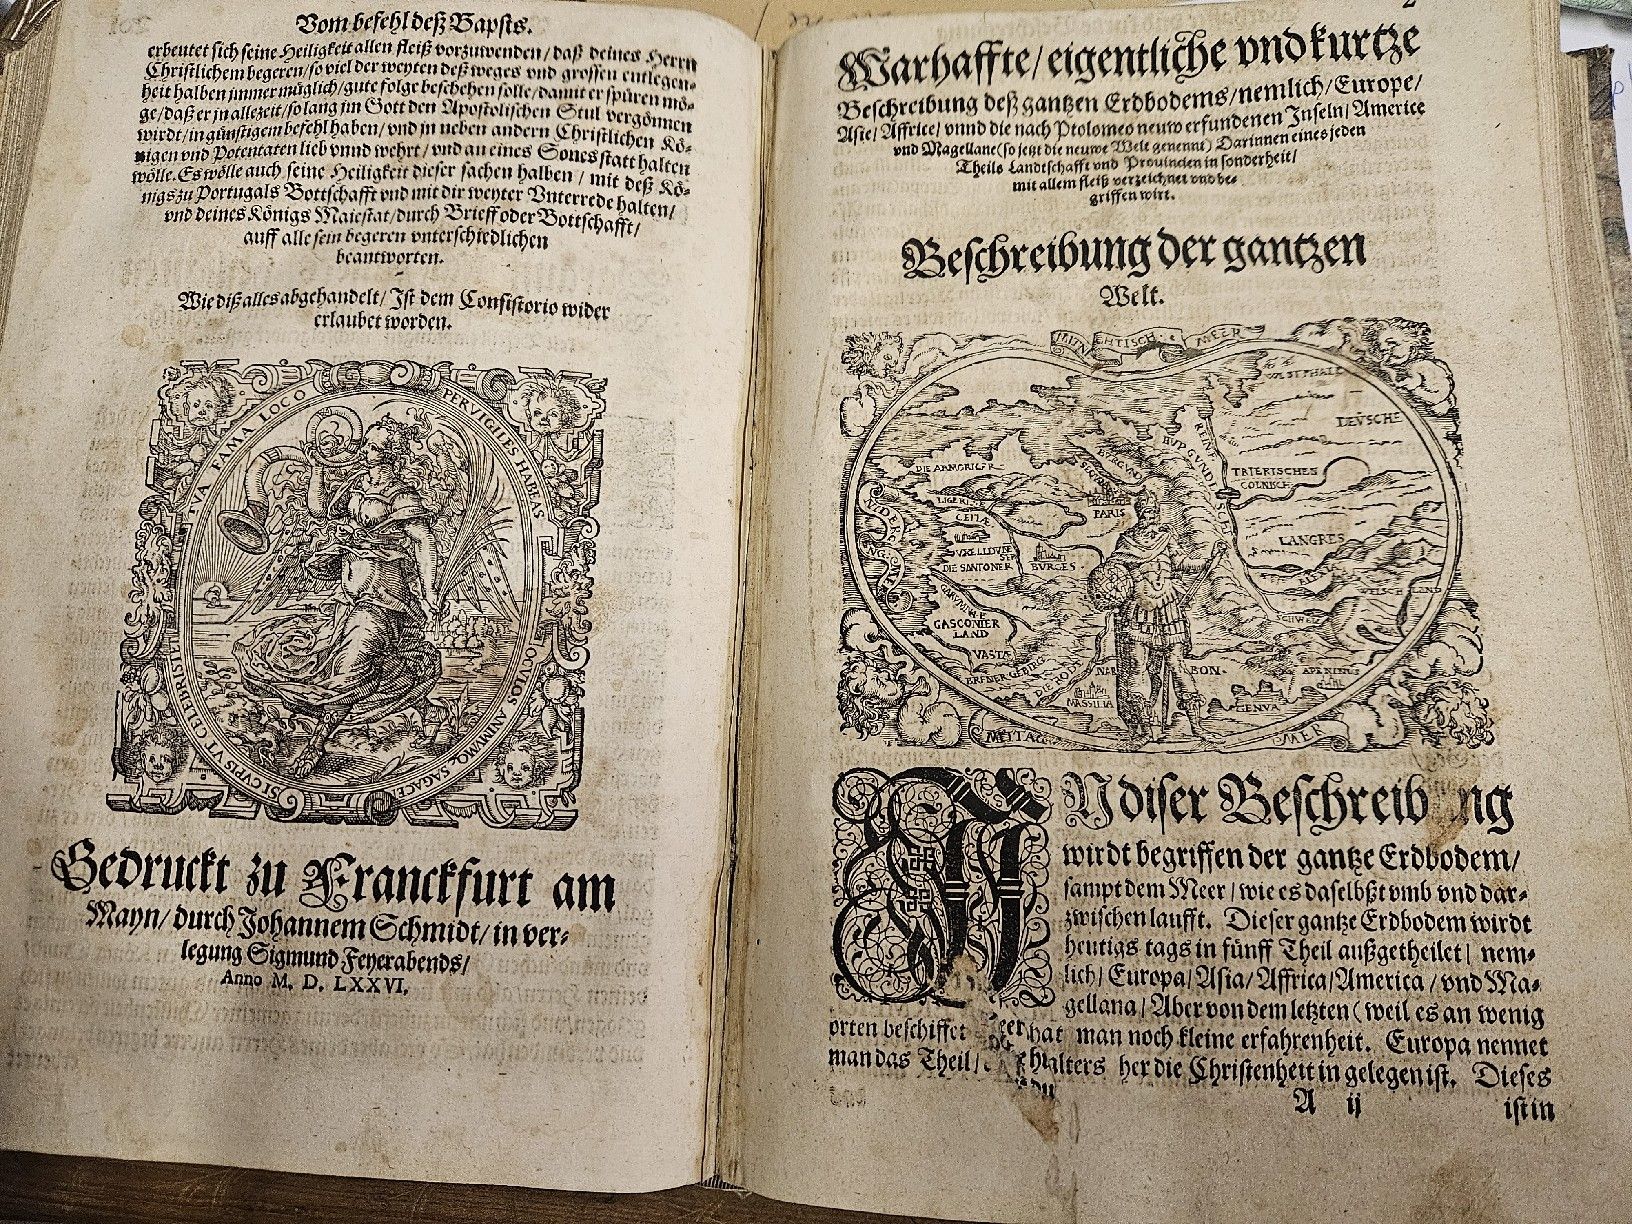 Vom befehl deß Bapsts.
erbeutet sich seine Heiligkeit allen fleiß vorzuwenden / daß deines Herrn
Christlichem begeren / so viel der weyten deß weges vnd grossen entlegen-
heit halben jmmer müglich / gute folge beschehen solle / damit er spüren mö-
ge / daß er jn allezeit / so lang jm Gott den Apostolischen Stul vergönnen
wirdt / in günstigem befehl haben / vnd in neben andern Christlichen Kö-
nigen vnd Potentaten lieb vnnd wehrt / vnd an eines Sones statt halten
wölle. Es wölle auch seine Heiligkeit dieser sachen halben / mit deß Kö-
nigs zu Portugals Bottschafft vnd mit dir weyter Vnterrede halten /
vnd deines Königs Maiestat / durch Brieff oder Bottschafft /
auff alle sein begeren vnterschiedlichen
beantworten.
Wie diß alles abgehandelt / Ist dem Consistorio wider
erlaubet worden.
SI CVPIS VT CELEBRI STET TVA FAMA LOCO
PERVIGILES HABEAS OCVLOS ANIMVMQ. SAGACEM
Gedruckt zu Franckfurt am
Mayn / durch Johannem Schmidt / in ver-
legung Sigmund Feyerabends /
Anno M. D. LXXVI.
2
Warhaffte / eigentliche vnd kurtze
Beschreibung deß gantzen Erdbodems / nemlich / Europe /
Asie / Affrice / vnnd die nach Ptolomeo neuw erfundenen Inseln / Americe
vnd Magellane (so jetzt die neuwe Welt genennt) Darinnen eines jeden
Theils Landtschafft vnd Prouincien in sonderheit /
mit allem fleiß verzeichnet vnd be-
griffen wirt.
Beschreibung der gantzen
Welt.
MEER
WESTPHALE
DEVSCHE
DIE ARMORICER
TATERISCHES
COLNISCH
PARIS
LANGRES
DIE SANTONER
BVRGES
WELSCH LAND
GASCONIER
LAND
SCHWEIZ
VASTÆ
NAR
BON.
MASSILIA
GENVA
MEER
IN diser Beschreib ng
wirdt begriffen der gantze Erdbodem /
sampt dem Meer / wie es daselbßt vmb vnd dar-
zwischen laufft. Dieser gantze Erdbodem wirdt
heutigs tags in fünff Theil außgetheilet / nem-
lich / Europa / Asia / Affrica / America / vnd Ma-
gellana / Aber von dem letzten (weil es an wenig
orten beschiffet hat man noch kleine erfahrenheit. Europa nennet
man das Theil / her die Christenheit in gelegen ist. Dieses
A ij
ist in